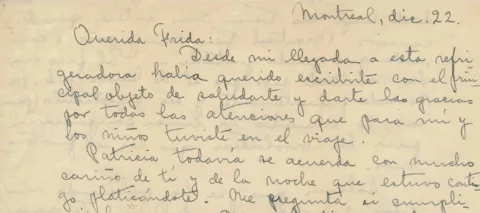 Montreal, dic. 22.
Querida Frida:
Desde mi llegada a esta refri
geradora habia querido escribirte con el prin
cipal objeto de saludarte y darte las gracias
por todas las atenciones que para mí y
los niños tuviste en el viaje.
Patricia todavía se acuerda con mucho
cariño de tí y de la noche que estuvo conti
go platicándote. Me pregunta si cumpli